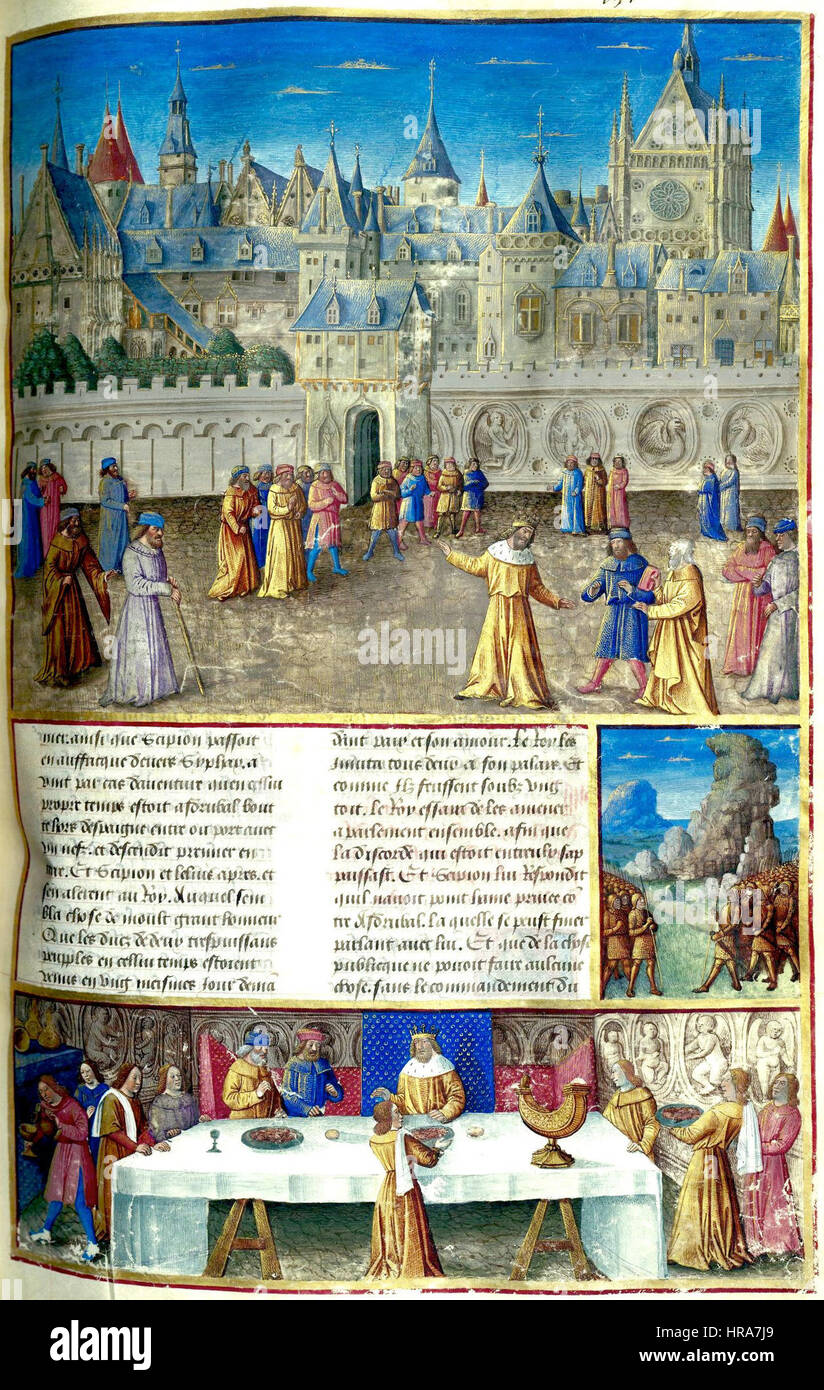 mer. ainsi que Scipion passoit
en auffricque devers Syphax. a
vint par cas daventure quen cellui
propre temps estoit asdrubal bout
te hors despaigne entre ou port avec
vii nefz. et descendit premier en
Et Scipion et lelius apres. et
sen alerent au Roy. Auquel sem
bla chose de moult grant honneur
Que les ducz de deux trespuissans
peuples en cellui temps estoient
venus en ung mesmes jour dema
dant paix et son amour. Le Roy les
invita tous deux a son palais. Et
comme ilz feussent soubz ung
toit. le Roy essaia de les amener
a parlement ensemble. afin que
la discorde qui estoit entreulx sap
paisast. Et Scipion lui Respondit
quil navoit point haine privee co
tre Asdrubal. la quelle se peust finer
parlant avec lui. Et que de la chose
publicque ne povoit faire aulcune
chose. sans le commandement du
alamy
alamy
Image ID: HRA7J9
www.alamy.com